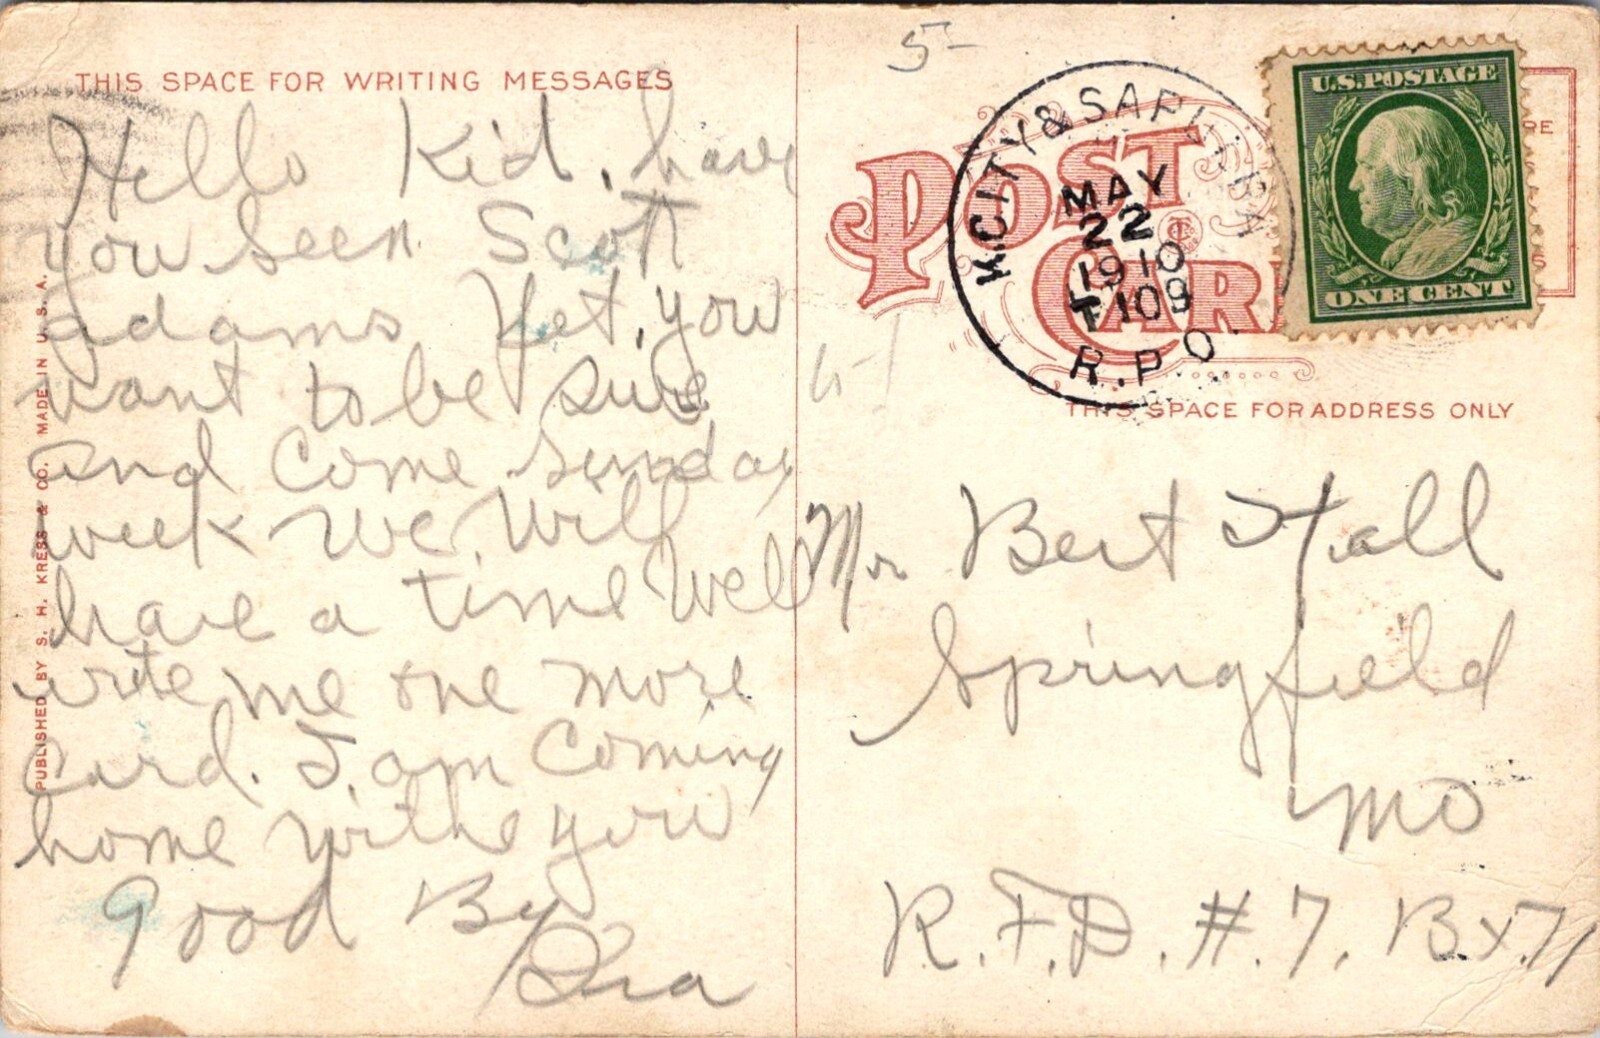 THIS SPACE FOR WRITING MESSAGES
Hello Kid, have
you seen Scott
adams Yet, you
want to be sure
and Come Sunday
week We Will
have a time Well
write me one more
Card. I am Coming
home withe you
Good By
Ira
PUBLISHED BY S. H. KRESS & CO. MADE IN U. S. A.
5-
POST CARD
K.CITY & SAPULPA
MAY
22
1910
T 109
R.P.O.
U.S.POSTAGE
ONE CENT
THIS SPACE FOR ADDRESS ONLY
Mr Bert Hall
Springfield
Mo
R.F.D. #.7. Bx.71